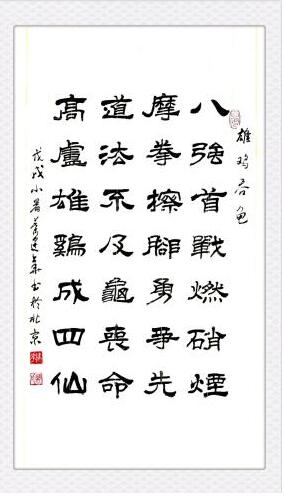 雄鸡吞龟
八強首戰燃硝煙
摩拳擦腳勇爭先
道法不及龜喪命
高盧雄鷄成四仙
戊戌小暑书於北京